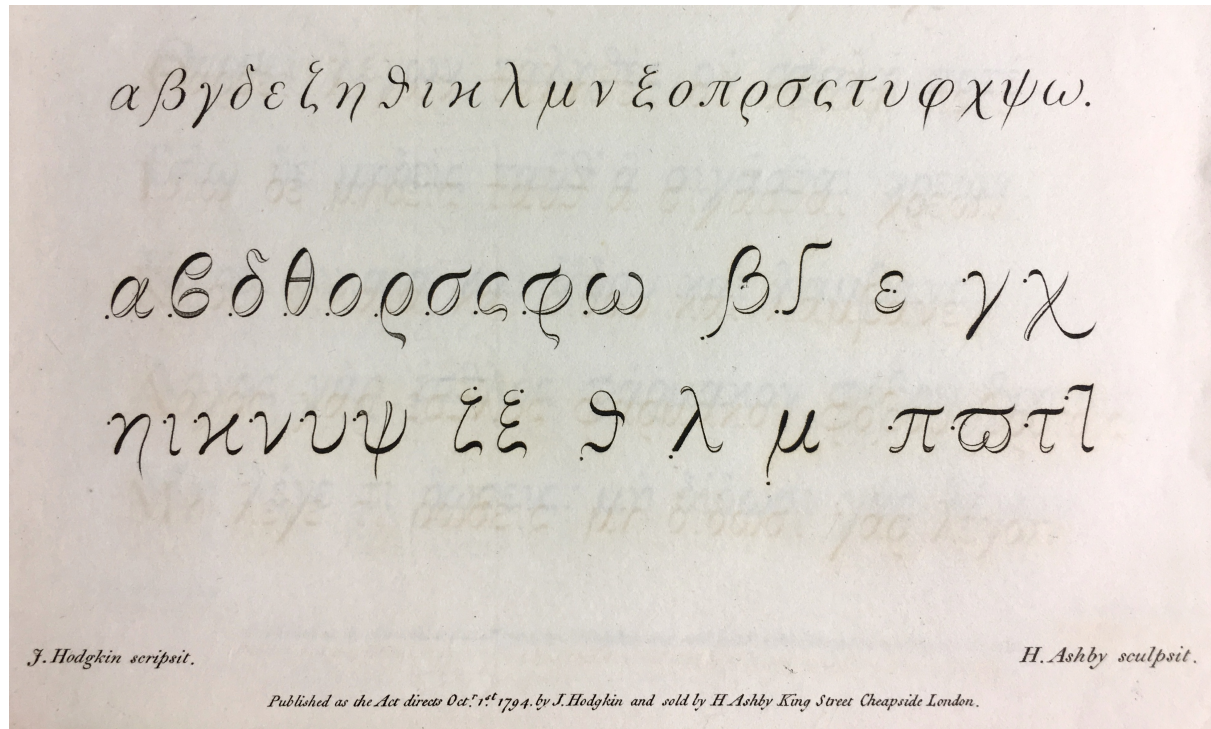 αβγδεζηϑικλμνξοπρσςτυφχψω.
αϐδθορσςφω βΓ ε γχ
ηικνυψ ζξ ϑ λ μ πϖτ⁊
J. Hodgkin scripsit. H. Ashby sculpsit.
Published as the Act directs Oct.r 1.st 1794. by J. Hodgkin and sold by H Ashby King Street Cheapside London.